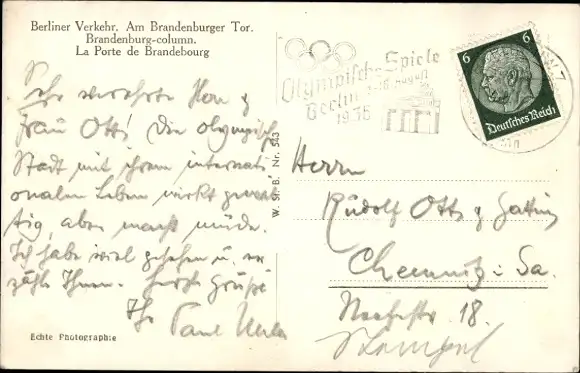 Berliner Verkehr. Am Brandenburger Tor.
Brandenburg-column.
La Porte de Brandebourg
Sehr verehrter Herr &
Frau Otto! Die olympische
Stadt mit ihrem internati
onalen Leben wirkt gewal
tig, aber macht müde.
Ich habe viel gesehen u. er
zähle Ihnen. Herzl. Grüße
Ihr Paul
Echte Photographie
W. St. B. Nr. 543
Olympische Spiele
Berlin 1.-16. August
1936
6 6
Deutsches Reich
Herrn
Rudolf Otto & Gattin
Chemnitz i. Sa.
18.